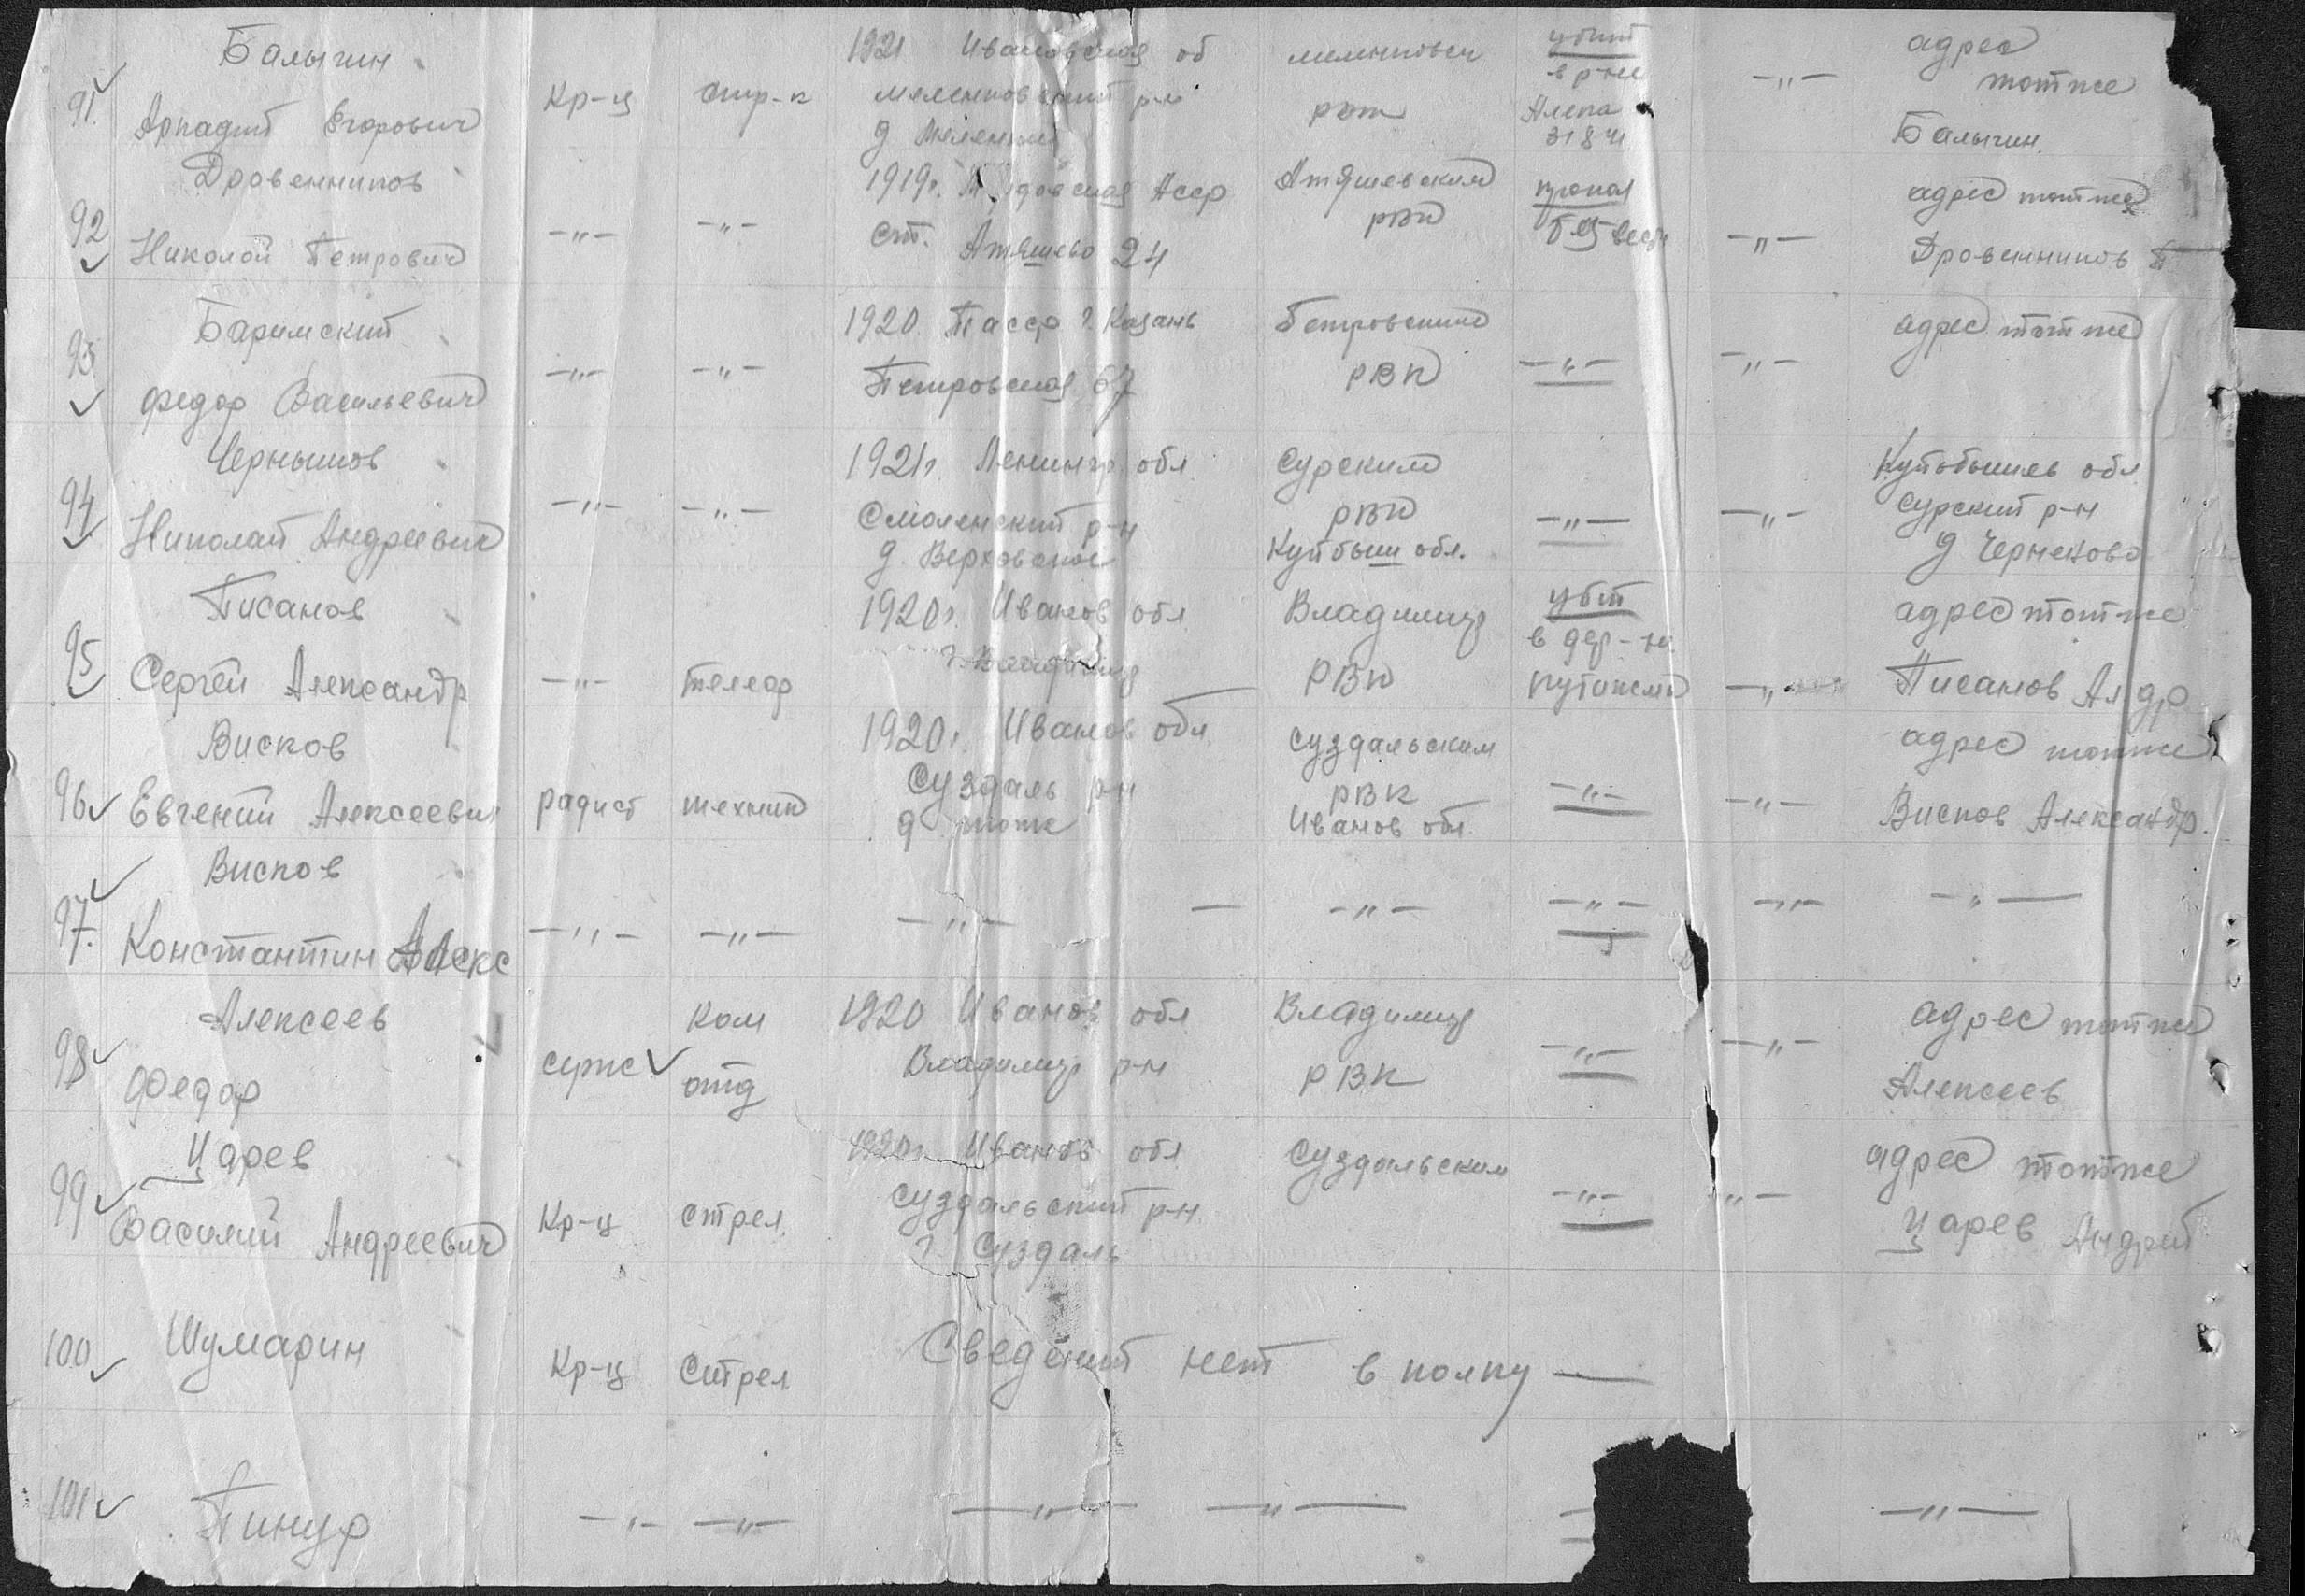 91. Балычин Аркадий Егорович Кр-ц стр-к 1921 Ивановская об меленковск адрес тот же
Меленковский р-н
д Меленки рвк убит в р-не 31 8 41 —„— Балычин.
92 Дровенников Николой Петрович —„— —„— 1919г. АССР Атяшевским пропал адрес тот же
ст. Атяшево 24 рвк без вест —„— Дровенников П
93 Баримский Федор Васильевич —„— —„— 1920. ТАССР г. Казань Петровским адрес тот же
Петровская 67 РВК —„— —„—
94 Чернышов Николай Андреевич —„— —„— 1921г. Ленингр обл Сурским Куйбышев обл
Смоленский р-н рвк —„— —„— Сурский р-н
д. Верховское Куйбыш обл. д Чернеково
95 Писанов Сергей Александр —„— телеф 1920г. Иванов обл Владимир убит адрес тот же
г. Владимир РВК в дер-не —„— Писанов Ал др
96 Висков Евгений Алексеевич радист техник 1920г. Иванов обл Суздальским адрес тот же
Суздаль р-н рвк —„— —„— Висков Александр.
д тоже Иванов обл
97. Висков Константин Алекс —„— —„— —„— — —„— —„— —„— —„—
98 Алексеев Федор серж Ком отд 1920 Иванов обл Владимир адрес тот же
Владимир р-н РВК —„— —„— Алексеев
99 Царев Василий Андреевич Кр-ц стрел. 1920г Иванов обл Суздальским адрес тот же
Суздальский р-н —„— „— Царев Андрей
г. Суздаль
100 Шумарин Кр-ц Стрел Сведений нет в полку —
101 Пинур —„— —„— —„— —„— —„—